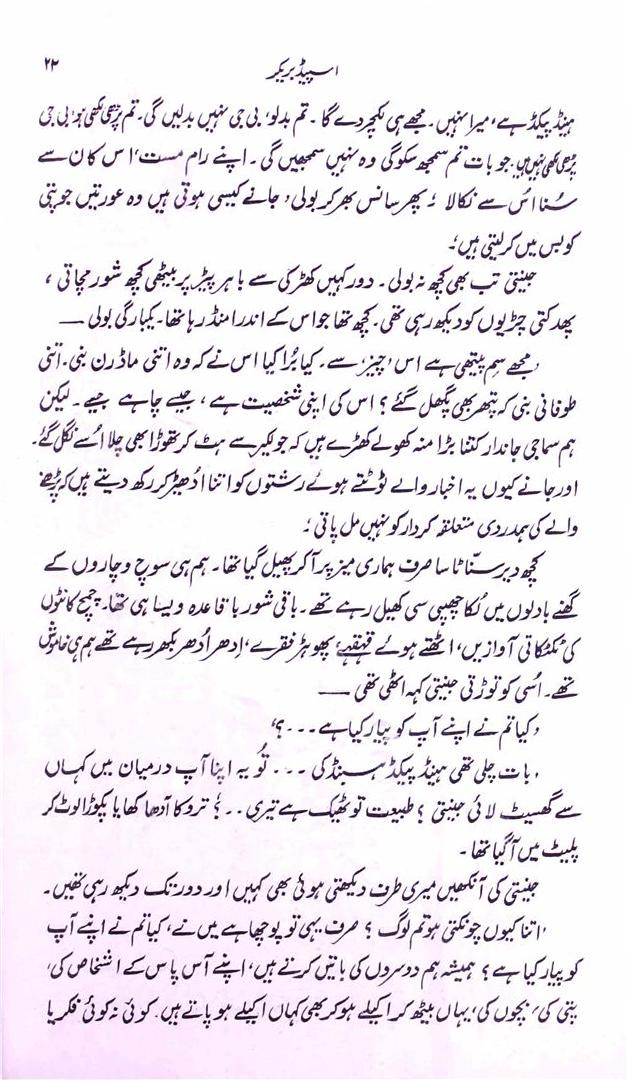 ۲۳
اسپیڈ بریکر
ہینڈ پیکڈ ہے، میرا نہیں۔ مجھے ہی لکچر دے گا۔ تم بدلو، بی جی نہیں بدلیں گی۔ تم پڑھی لکھی ہو، بی جی
پڑھی لکھی نہیں ہیں۔ جو بات تم سمجھ سکو گی وہ نہیں سمجھیں گی۔ اپنے رام مست، اس کان سے
سُنا اُس سے نکالا؛ پھر سانس بھر کر بولی، جانے کیسی ہوتی ہیں وہ عورتیں جو پتی
کو بس میں کر لیتی ہیں؛
جینتی تب بھی کچھ نہ بولی۔ دور کہیں کھڑکی سے باہر پیڑ پر بیٹھی کچھ شور مچاتی،
پھدکتی چڑیوں کو دیکھ رہی تھی۔ کچھ تھا جو اس کے اندر امنڈ رہا تھا۔ یکبارگی بولی —
’مجھے سِم پیتھی ہے اس ’چیز‘ سے۔ کیا بُرا کیا اس نے کہ وہ اتنی ماڈرن بنی۔ اتنی
طوفانی بنی کہ پتھر بھی پگھل گئے؟ اس کی اپنی شخصیت ہے، جیسے چاہے جیے۔ لیکن
ہم سماجی جاندار کتنا بڑا منہ کھولے کھڑے ہیں کہ جو لکیر سے ہٹ کر تھوڑا بھی چلا اُسے نگل گئے۔
اور جانے کیوں یہ اخبار والے ٹوٹتے ہوئے رشتوں کو اتنا اُدھیڑ کر رکھ دیتے ہیں کہ پڑھنے
والے کی ہمدردی متعلقہ کردار کو نہیں مل پاتی؛
کچھ دیر سنّاٹا سا صرف ہماری میز پر آ کر پھیل گیا تھا۔ ہم ہی سوچ وچاروں کے
گھنے بادلوں میں لُکا چھپی سی کھیل رہے تھے۔ باقی شور باقاعدہ ویسا ہی تھا۔ چمچ کانٹوں
کی ٹکٹکاتی آوازیں، اٹھتے ہوئے قہقہے، پھوہڑ فقرے، اِدھر اُدھر بکھر رہے تھے ہم ہی خاموش
تھے۔ اُسی کو توڑتی جینتی کہہ اٹھی تھی —
’کیا تم نے اپنے آپ کو پیار کیا ہے ۔۔۔؟‘
’بات چلی تھی ہینڈ پیکڈ ہسبینڈ کی ۔۔۔ تُو یہ اپنا آپ درمیان میں کہاں
سے گھسیٹ لائی جینتی؟ طبیعت تو ٹھیک ہے تیری ۔۔؟‘ ترو کا آدھا کھایا پکوڑا لوٹ کر
پلیٹ میں آ گیا تھا۔
جینتی کی آنکھیں میری طرف دیکھتی ہوئی بھی کہیں اور دور تک دیکھ رہی تھیں۔
’اتنا کیوں چونکتی ہو تم لوگ؟ صرف یہی تو پوچھا ہے میں نے، کیا تم نے اپنے آپ
کو پیار کیا ہے؟ ہمیشہ ہم دوسروں کی باتیں کرتے ہیں، اپنے آس پاس کے اشخاص کی،
پتی کی، بچوں کی، یہاں بیٹھ کر اکیلے ہو کر بھی کہاں اکیلے ہو پاتے ہیں۔ کوئی نہ کوئی فکر یا